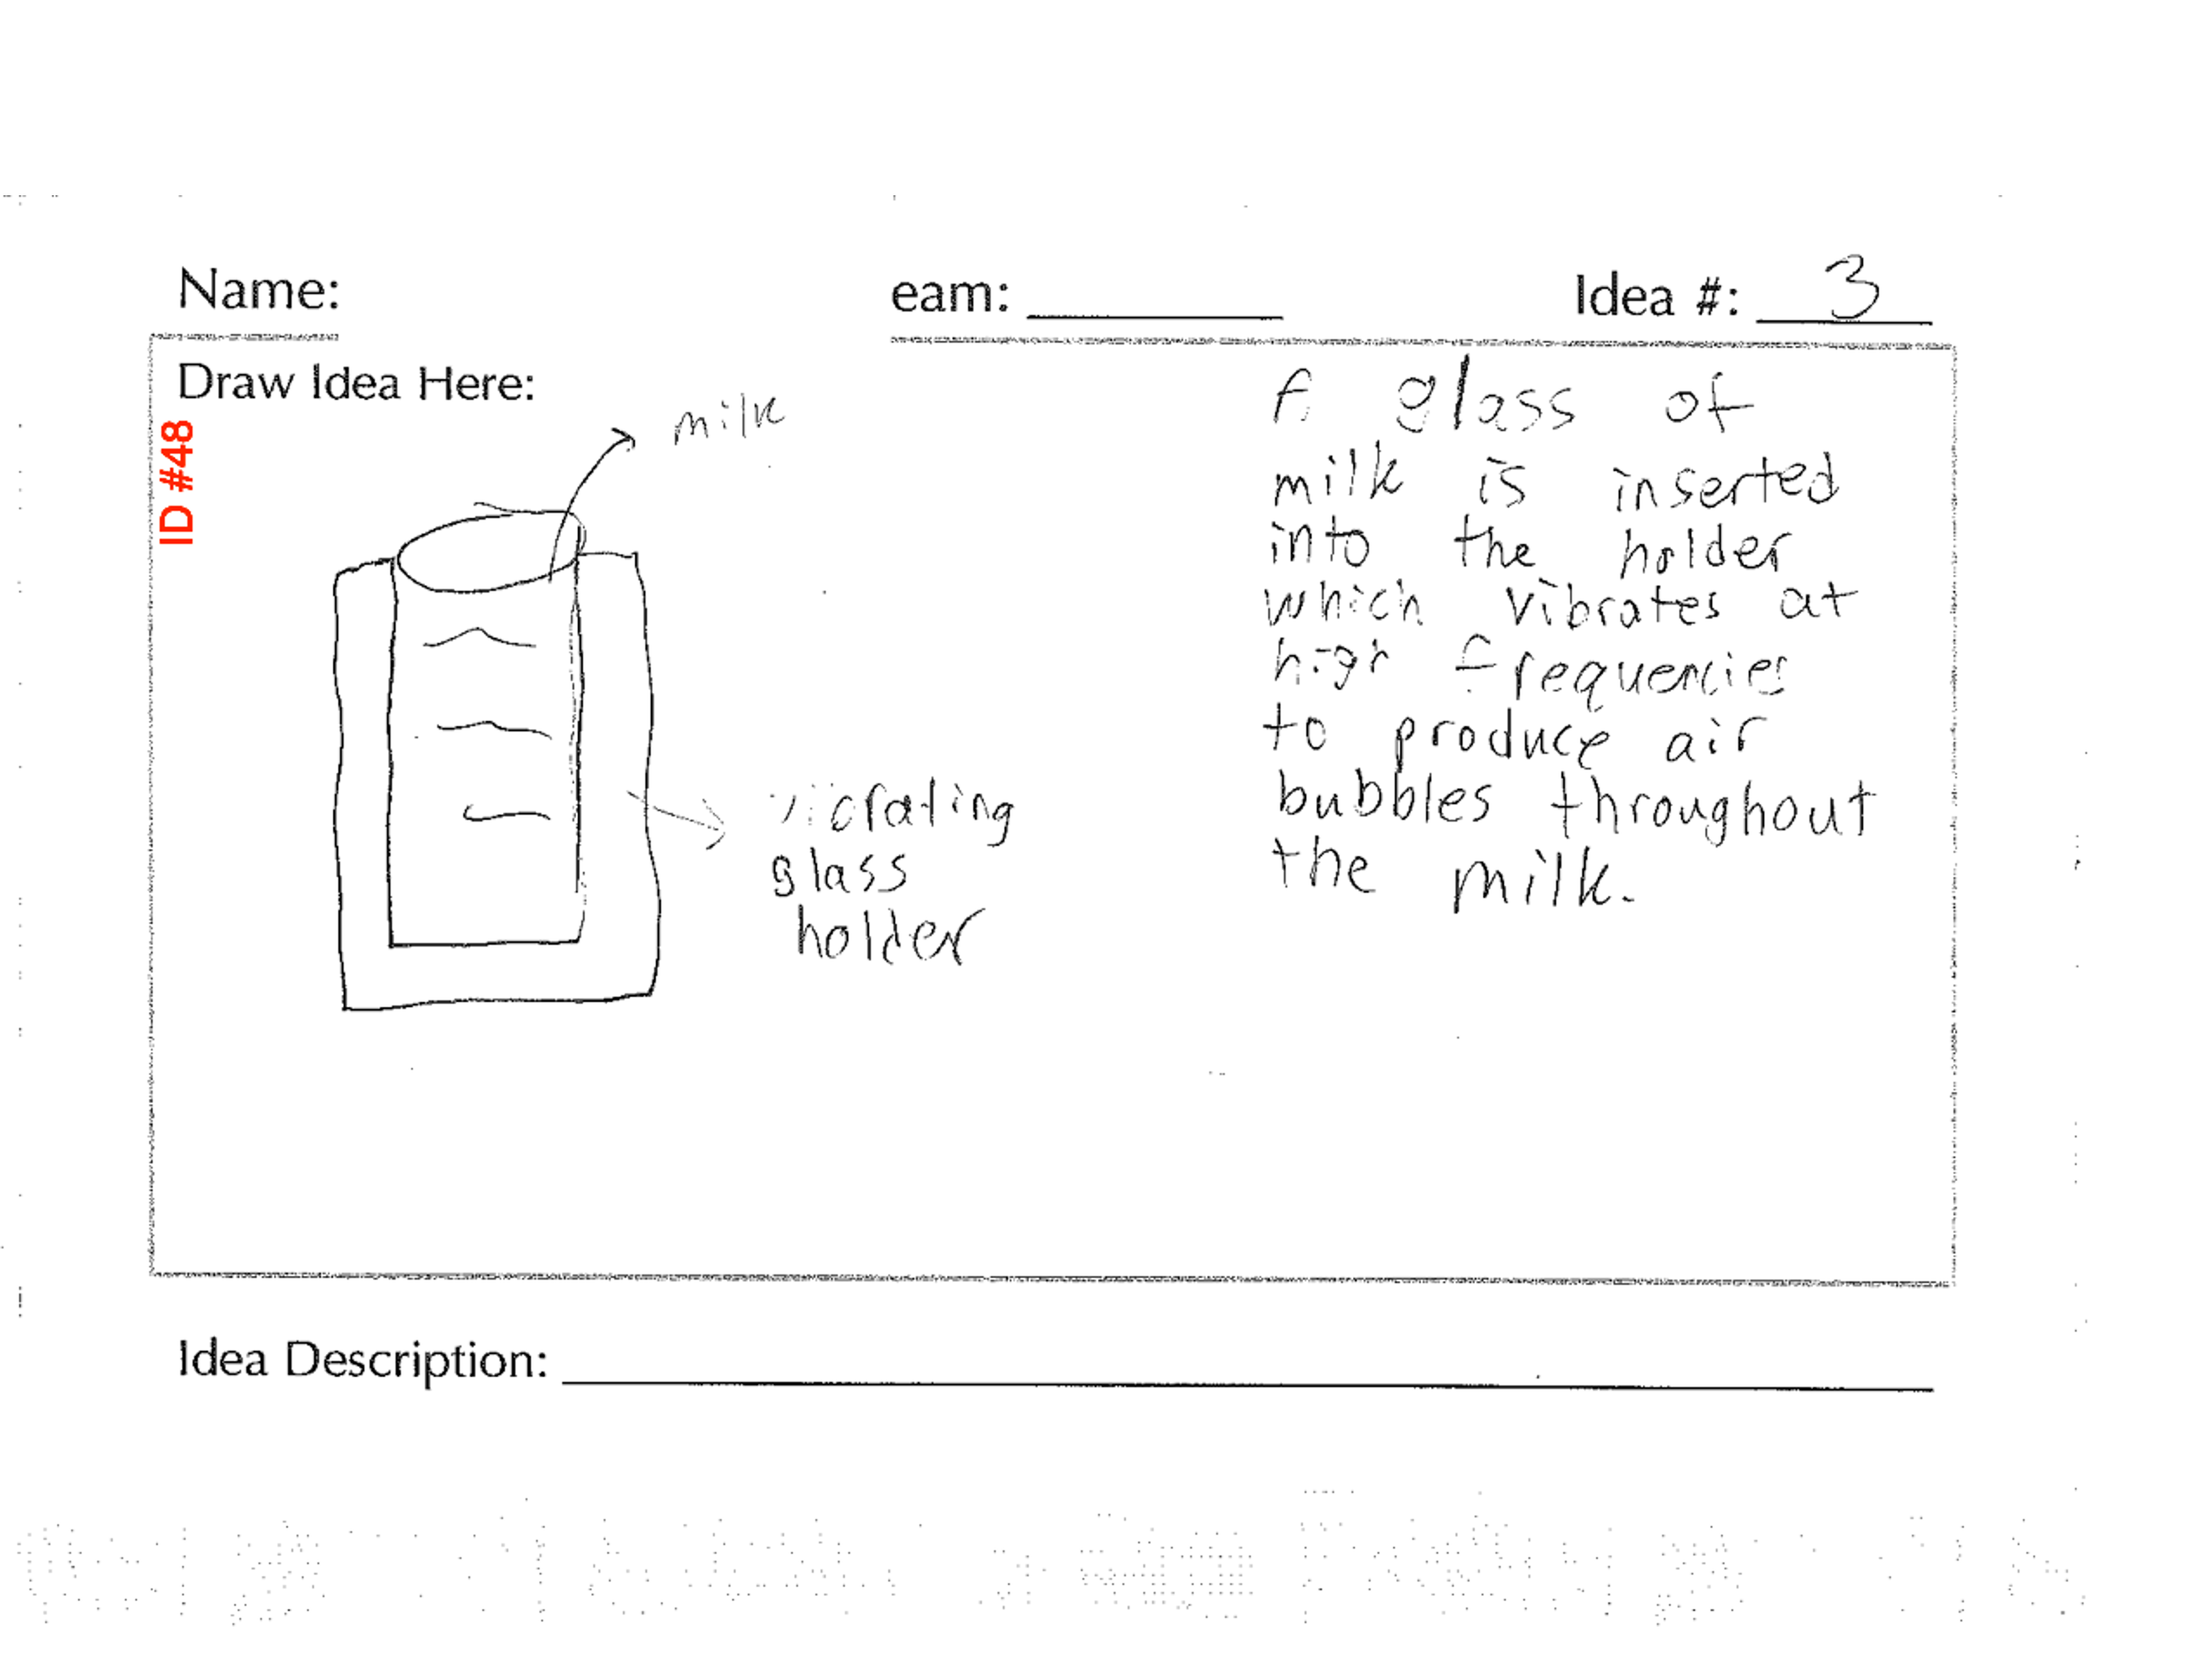 Name:
eam:
Idea #: 3
Draw Idea Here:
ID #48
milk
vibrating
glass
holder
A glass of
milk is inserted
into the holder
which vibrates at
high frequencies
to produce air
bubbles throughout
the milk.
Idea Description: